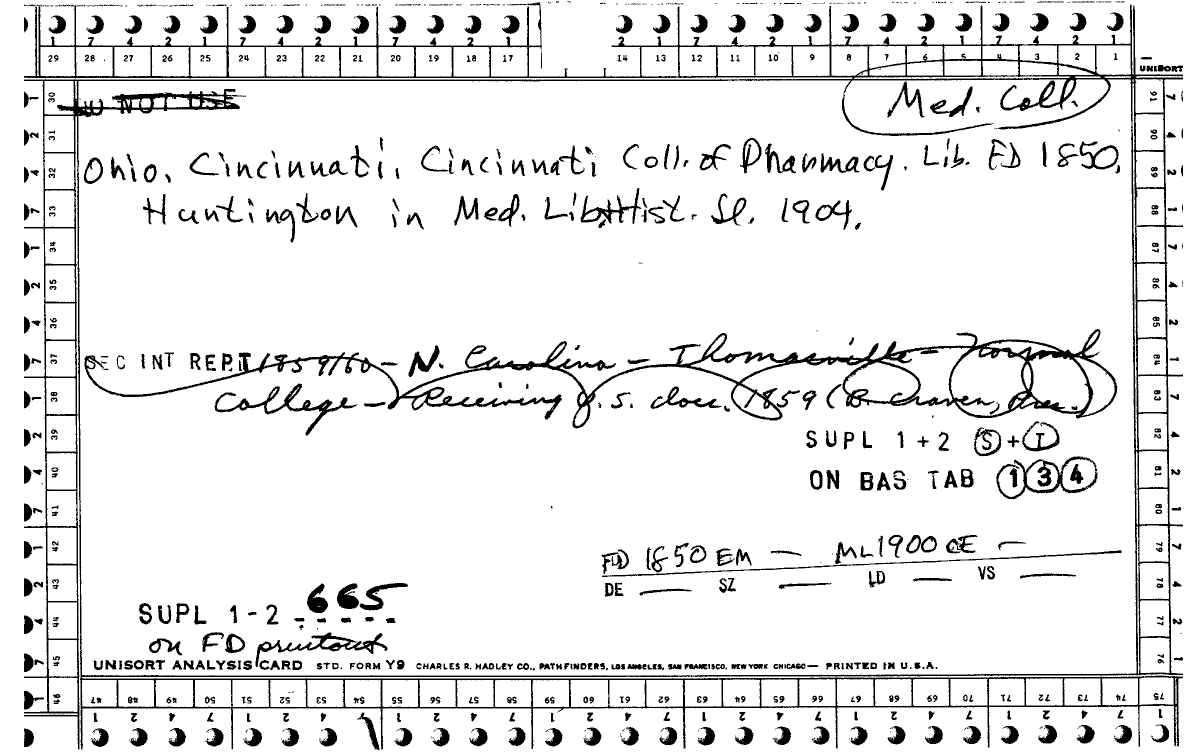 7 4 2 1 7 4 2 1 7 4 2 1 7 4 2 1 2 1 7 4 2 1 7 4 2 1 7 4 2 1
29 28 27 26 25 24 23 22 21 20 19 18 17 14 13 12 11 10 9 8 7 6 5 4 3 2 1
UNISORT
DO NOT USE
Med. Coll.
Ohio, Cincinnati, Cincinnati Coll. of Pharmacy. Lib. FD 1850,
Huntington in Med. Lib. Hist. Jl. 1904.
SEC INT REPT 1859/60 – N. Carolina – Thomasville – Normal
College – Receiving U.S. docs. 1859 (B. Craven, Pres.)
SUPL 1+2 S+I
ON BAS TAB 1 3 4
FD 1850 EM — ML 1900 CE —
DE — SZ — LD — VS —
SUPL 1-2 665
on FD printout
UNISORT ANALYSIS CARD STD. FORM Y9 CHARLES R. HADLEY CO., PATHFINDERS, LOS ANGELES, SAN FRANCISCO, NEW YORK CHICAGO — PRINTED IN U.S.A.
30 31 32 33 34 35 36 37 38 39 40 41 42 43 44 45 46
91 90 89 88 87 86 85 84 83 82 81 80 79 78 77 76 75
47 48 49 50 51 52 53 54 55 56 57 58 59 60 61 62 63 64 65 66 67 68 69 70 71 72 73 74